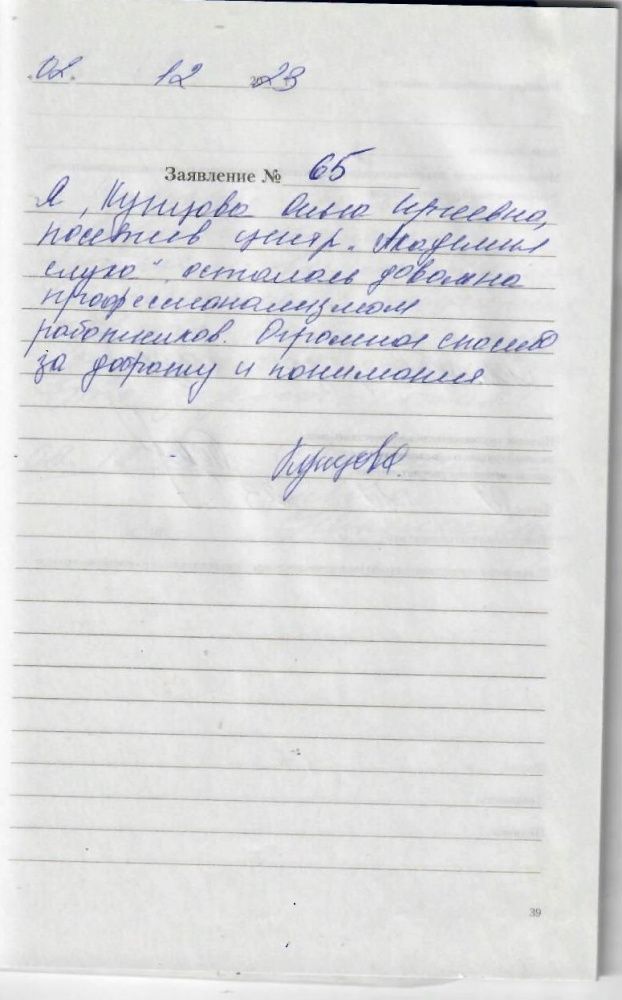 02. 12 2023
Заявление № 65
Я, Купцова Ольга Сергеевна,
посетив центр „Академия
слуха“ осталась довольна
профессионализмом
работников. Огромное спасибо
за доброту и понимание.
Купцова
39